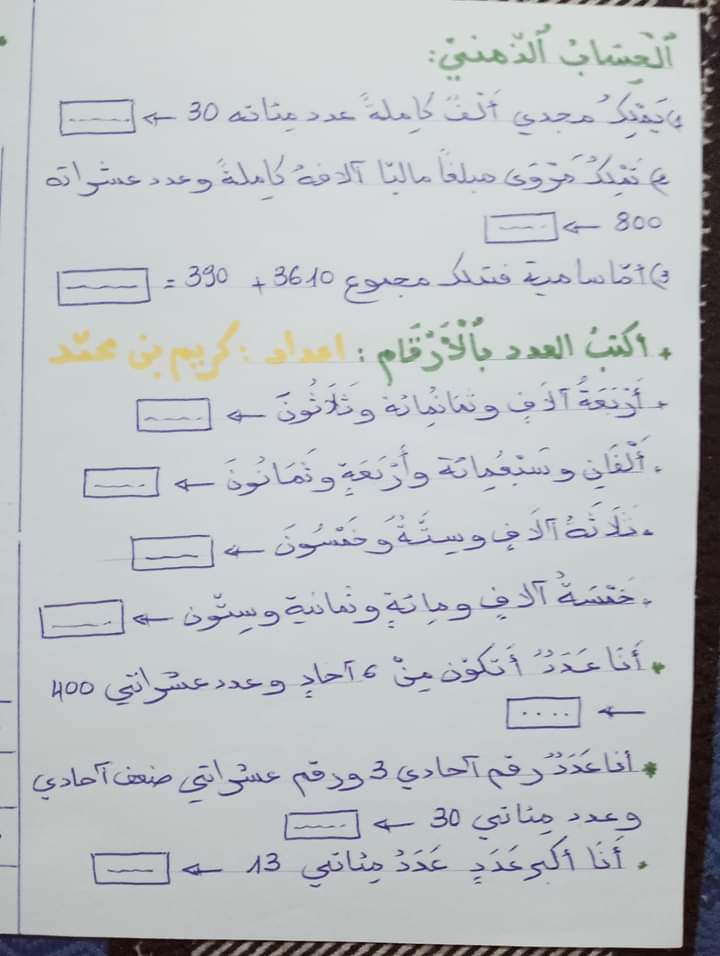 الْحِسَابُ الذِّهْنِيّ:
1) يَمْلِكُ مجدي أَلْفَ كَامِلَةً عدد مئاته 30 ← ......
2) تَمْلِكُ مَرْوَى مبلغًا ماليّا آلافهُ كَامِلَةً وعدد عشراته
800 ← ......
3) أمّا سامية فتملك مجموع 3610 + 390 = ......
+ اكتبُ العدد بِالْأَرْقَامِ: اعداد: كريم بن محمّد
+ أَرْبَعَةُ آلَافٍ وثمانمائة وثَلَاثُونَ ← ......
. أَلْفَانِ وسَبْعُمِائة وأَرْبَعَةٍ وثَمَانُونَ ← ......
. ثَلَاثَةُ آلَافٍ وسِتَّةُ وخَمْسُونَ ← ......
. خَمْسَةُ آلافٍ ومِائةٍ وثمانية وسِتّون ← ......
* أَنَا عَدَدٌ أَتكوّن مِنْ 6 آحادٍ وعدد عشراتي 400
← ....
* أنا عَدَدٌ رقم آحادي 3 ورقم عشراتي ضعف آحادي
وعدد مِئاتي 30 ← ......
. أَنَا أكبر عَدَدٍ عَدَدُ مِئاتي 13 ← ......